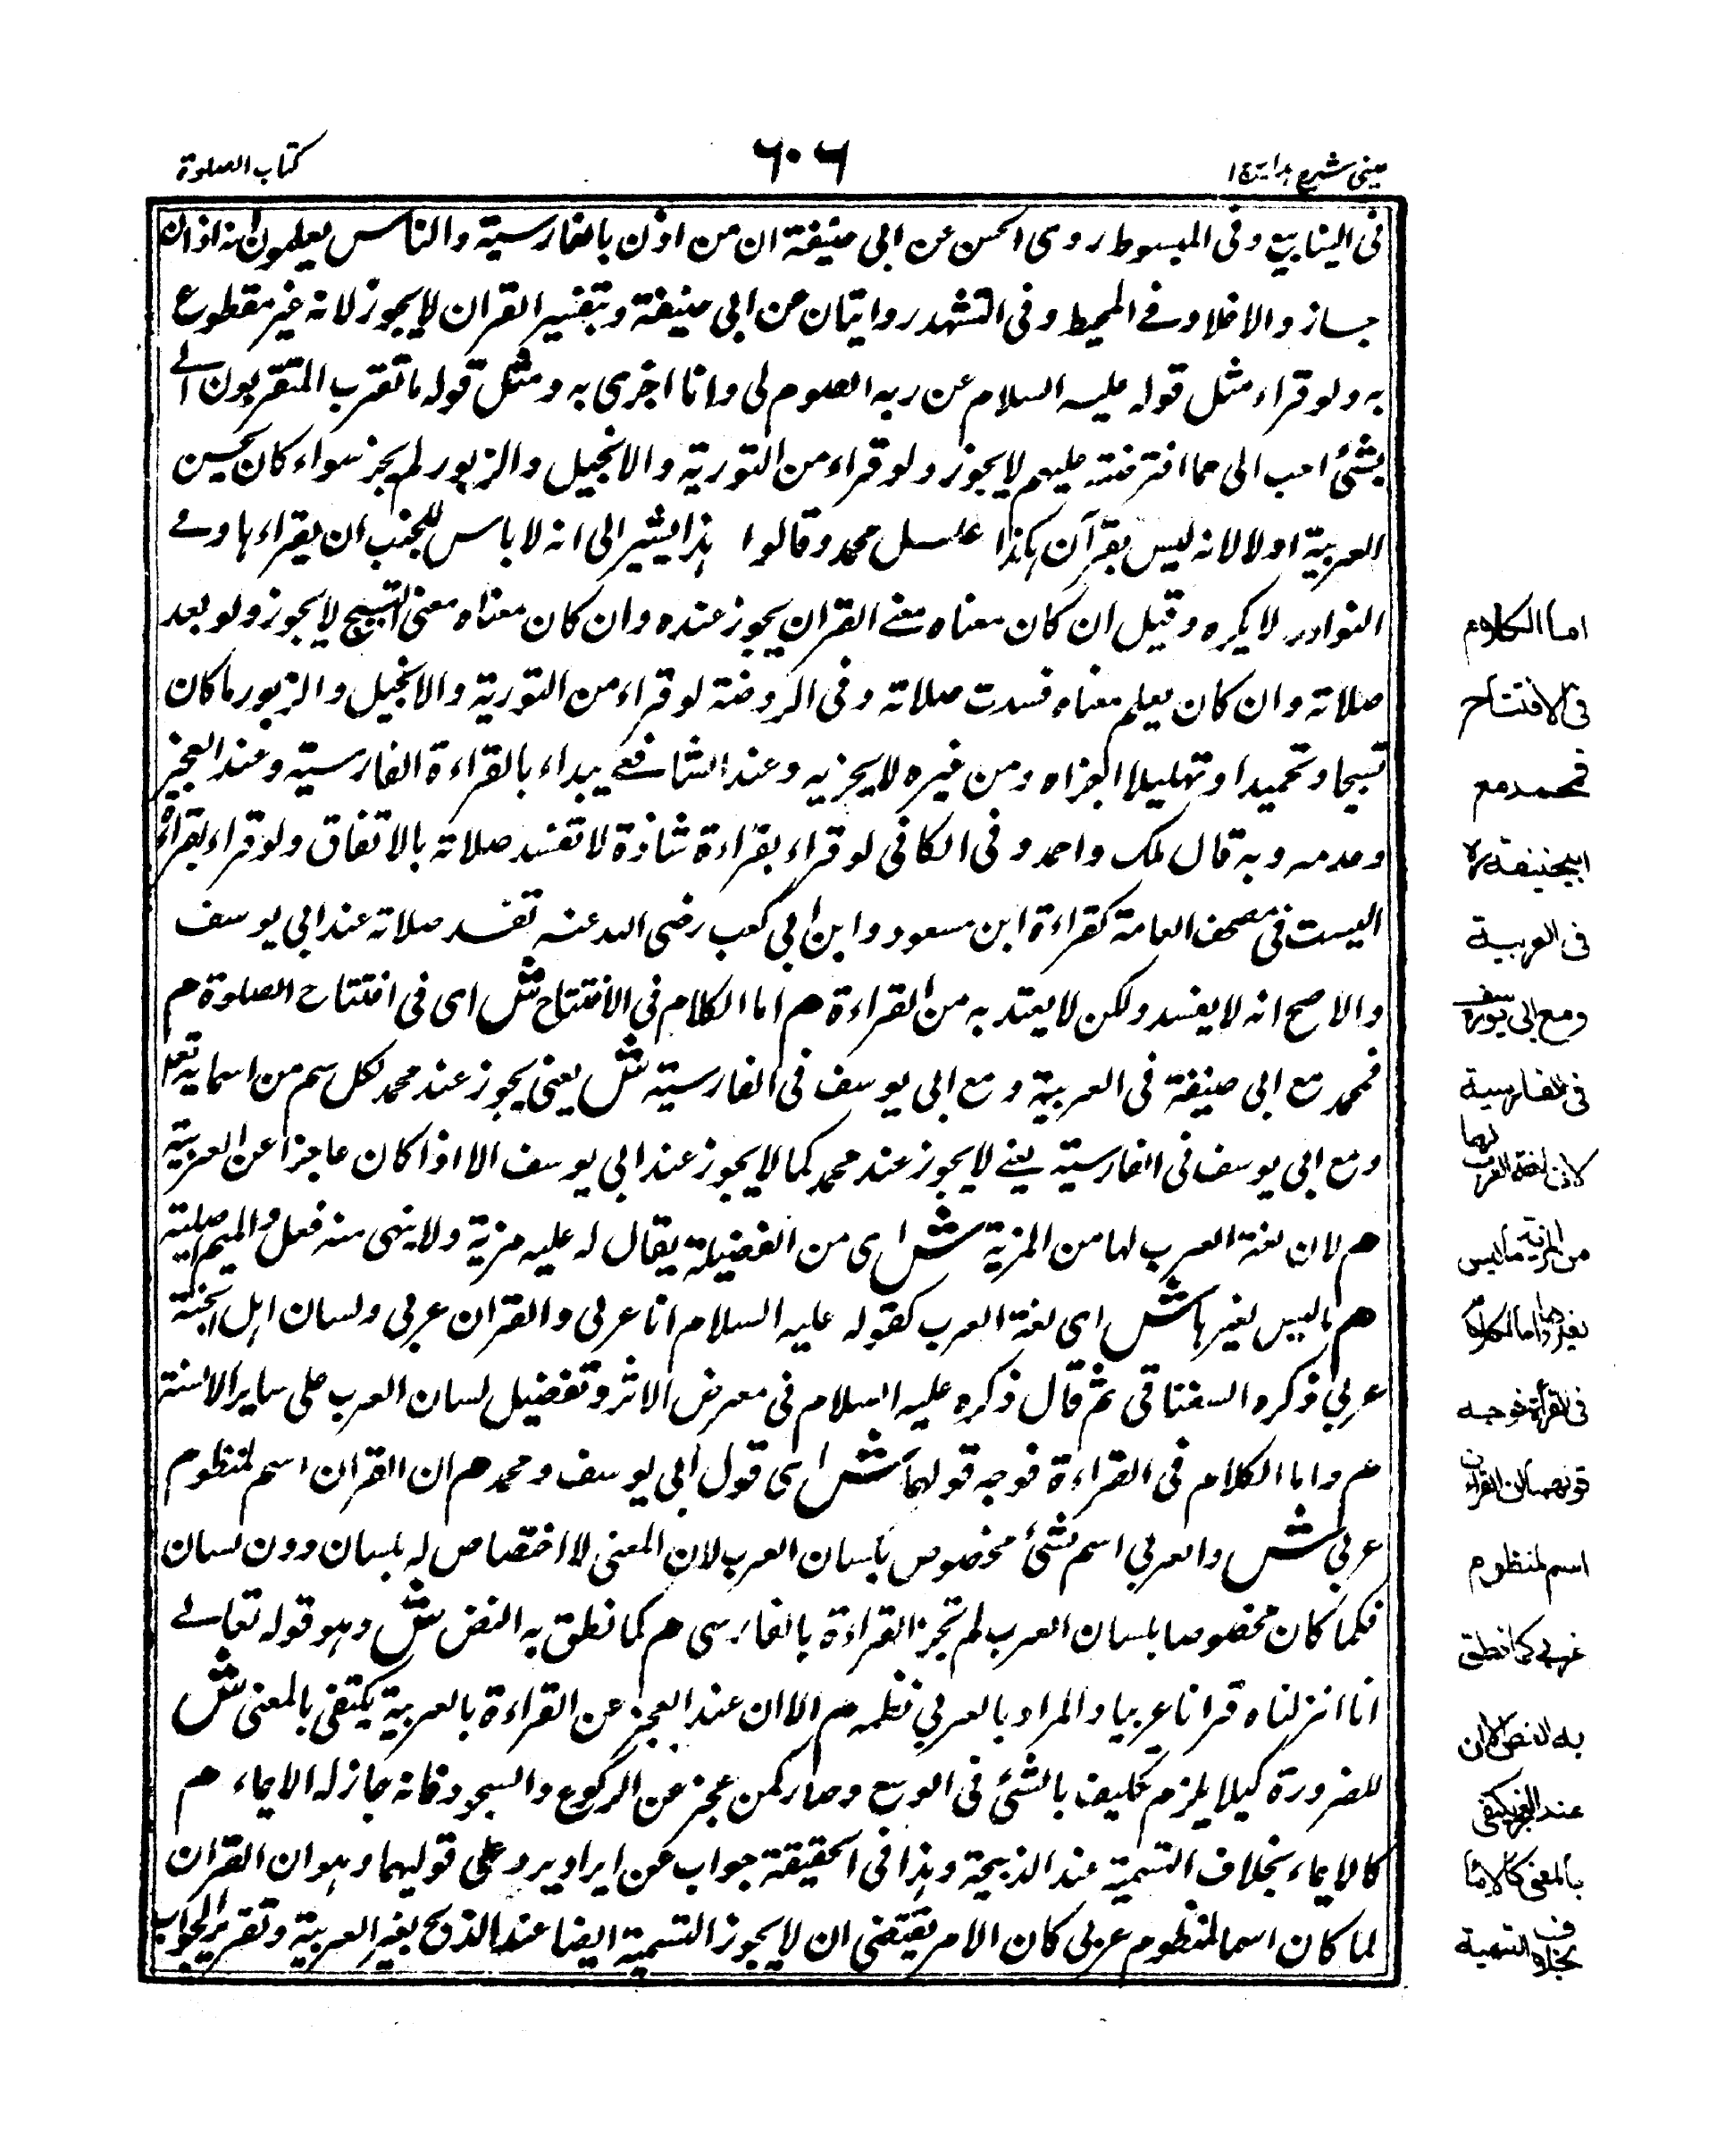 عینی شرح هدایة ج ۱
۶۰۶
کتاب الصلوة
فی الینابیع وفی المبسوط روی الحسن عن ابی حنیفة ان من اذن بالفارسیة والناس یعلمون انه اذان
جاز والا فلا وفے المحیط وفی التشهد روایتان عن ابی حنیفة وبتفسیر القران لا یجوز لانه غیر مقطوع
به ولو قراء مثل قوله علیه السلام عن ربه الصوم لی وانا اجزی به ومثل قوله ما تقرب المتقربون الے
بشئ احب الی مما افترضته علیهم لا یجوز ولو قراء من التوریة والانجیل والزبور لم یجز سواء کان یحسن
العربیة اولا لانه لیس بقرآن هکذا علل محمد وقالوا هذا یشیر الی انه لا باس للجنب ان یقراء ها وفے
النوادر لا یکره وقیل ان کان معناه معنے القران یجوز عنده وان کان معناه معنی التسبیح لا یجوز ولو بعد
صلاته وان کان یعلم معناه فسدت صلاته وفی الروضة لو قراء من التوریة والانجیل والزبور ما کان
تسبیحا وتحمیدا او تهلیلا اجزاه ومن غیره لا یجزیه وعند الشافعے یبداء بالقراءة الفارسیة وعند العجز
وعدمه وبه قال ملک واحمد وفی الکافی لو قراء بقراءة شاذة لا تفسد صلاته بالاتفاق ولو قراء بقراءة
الیست فی مصحف العامة کقراءة ابن مسعود وابن ابی کعب رضی الله عنه تفسد صلاته عند ابی یوسف
والاصح انه لا یفسد ولکن لا یعتد به من القراءة هم اما الکلام فی الافتتاح ش ای فی افتتاح الصلوة م
فمحمد مع ابی حنیفة فی العربیة ومع ابی یوسف فی الفارسیة ش یعنی یجوز عند محمد لکل سم من اسمایه تعالے
ومع ابی یوسف فی الفارسیة یعنے لا یجوز عند محمد کما لا یجوز عند ابی یوسف الا اذا کان عاجزا عن العربیة
هم لان لغة العرب لها من المزیة ش ای من الفضیلة یقال له علیه مزیة ولا ینبی منه فعل والمیم اصلیة
هم مالیس لغیرها ش ای لغة العرب کقوله علیه السلام انا عربی والقران عربی ولسان اهل الجنة
عربی ذکره السغناقی ثم قال ذکره علیه السلام فی معرض الاثر وتفضیل لسان العرب علی سایر الالسنة
هم واما الکلام فی القراءة فوجه قولهما ش ای قول ابی یوسف ومحمد هم ان القران اسم لمنظوم
عربی ش والعربی اسم لشئ مخصوص بلسان العرب لان المعنی لا اختصاص له بلسان دون لسان
فکما کان مخصوصا بلسان العرب لم تجز القراءة بالفارسی هم کما نطق به النص ش وهو قوله تعالے
انا انزلناه قرانا عربیا والمراد بالعربی نظمه هم الا ان عند العجز عن القراءة بالعربیة یکتفی بالمعنی ش
للضرورة کیلا یلزم تکلیف بالشئ فی الوسع وصار کمن عجز عن الرکوع والسجود فانه جاز له الایماء هم
کالایماء بخلاف التسمیة عند الذبیحة وهذا فی الحقیقة جواب عن ایراد یرد علی قولیهما وهو ان القران
لما کان اسما لمنظوم عربی کان الامر یقتضی ان لا یجوز التسمیة ایضا عند الذبح بغیر العربیة وتقریر الجواب
اما الکلام
فی الافتتاح
فمحمد مع
ابیحنیفة ره
فی العربیة
ومع ابی یوسف
فی الفارسیة
لان لغة العرب لها
من المزیة مالیس
لغیرها واما الکلام
فی القراءة فوجه
قولهما ان القران
اسم لمنظوم
عربی کما نطق
به النص الا ان
عند العجز یکتفی
بالمعنی کالایماء
بخلاف التسمیة